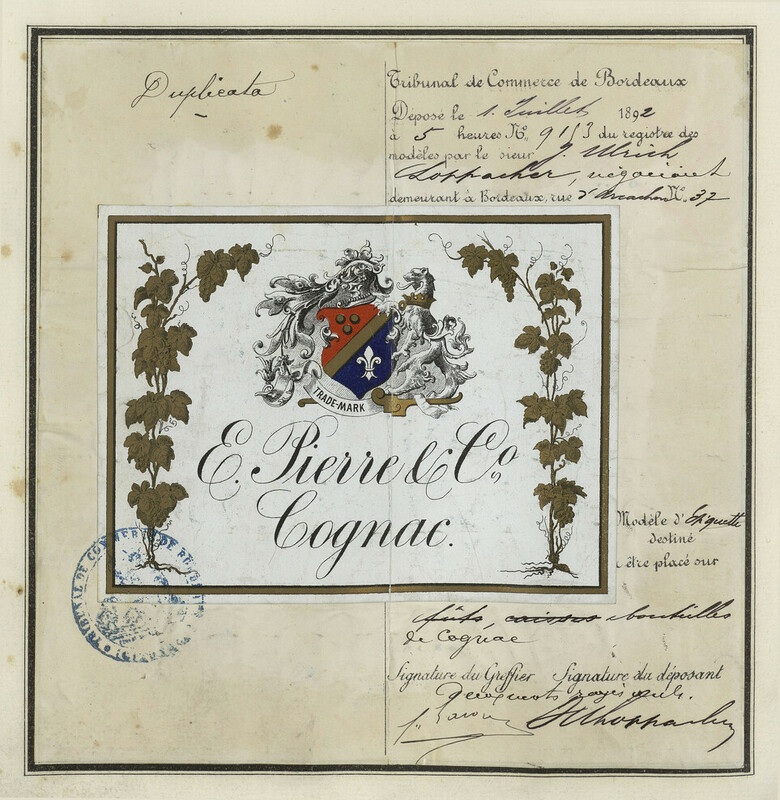 Duplicata
Tribunal de Commerce de Bordeaux
Déposé le 1. Juillet 1892
à 5 heures No. 9153 du registre des
modèles par le sieur J. Ulrich
négociant
demeurant à Bordeaux, rue d'Arcachon No. 37
TRADE-MARK
E. Pierre & Co
Cognac.
Modèle d'Etiquette
destiné
à être placé sur
fûts, caisses bouteilles
de Cognac
Signature du Greffier Signature du déposant
rayés nuls.
TRIBUNAL DE COMMERCE DE BORDEAUX